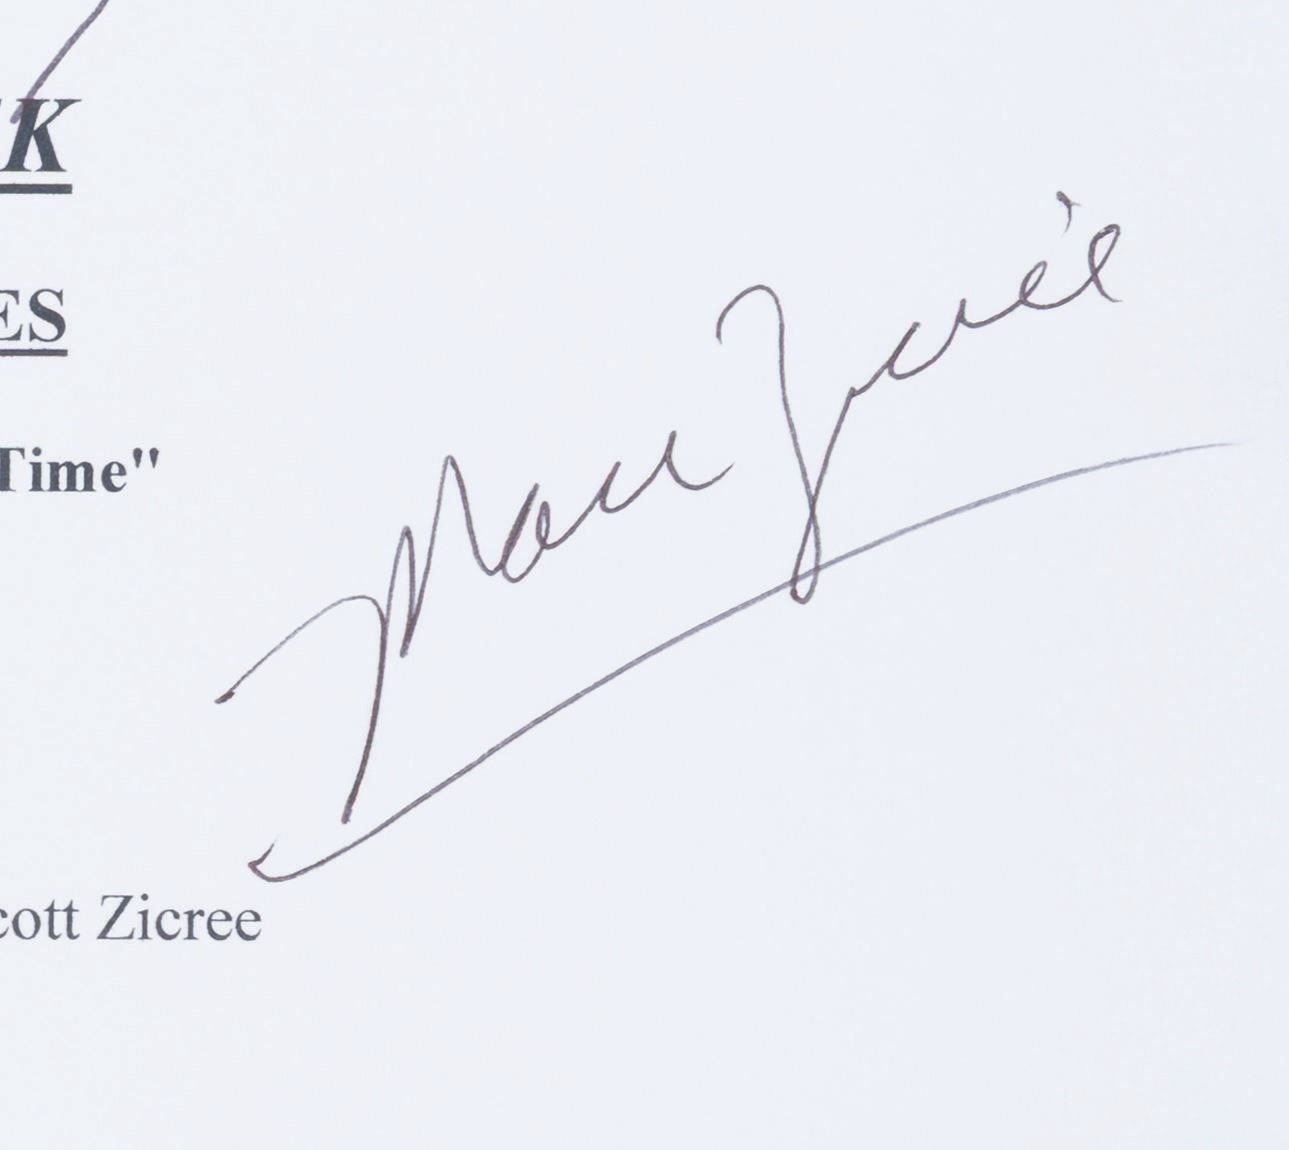 EK
ES
Time"
Marc Zicree
cott Zicree